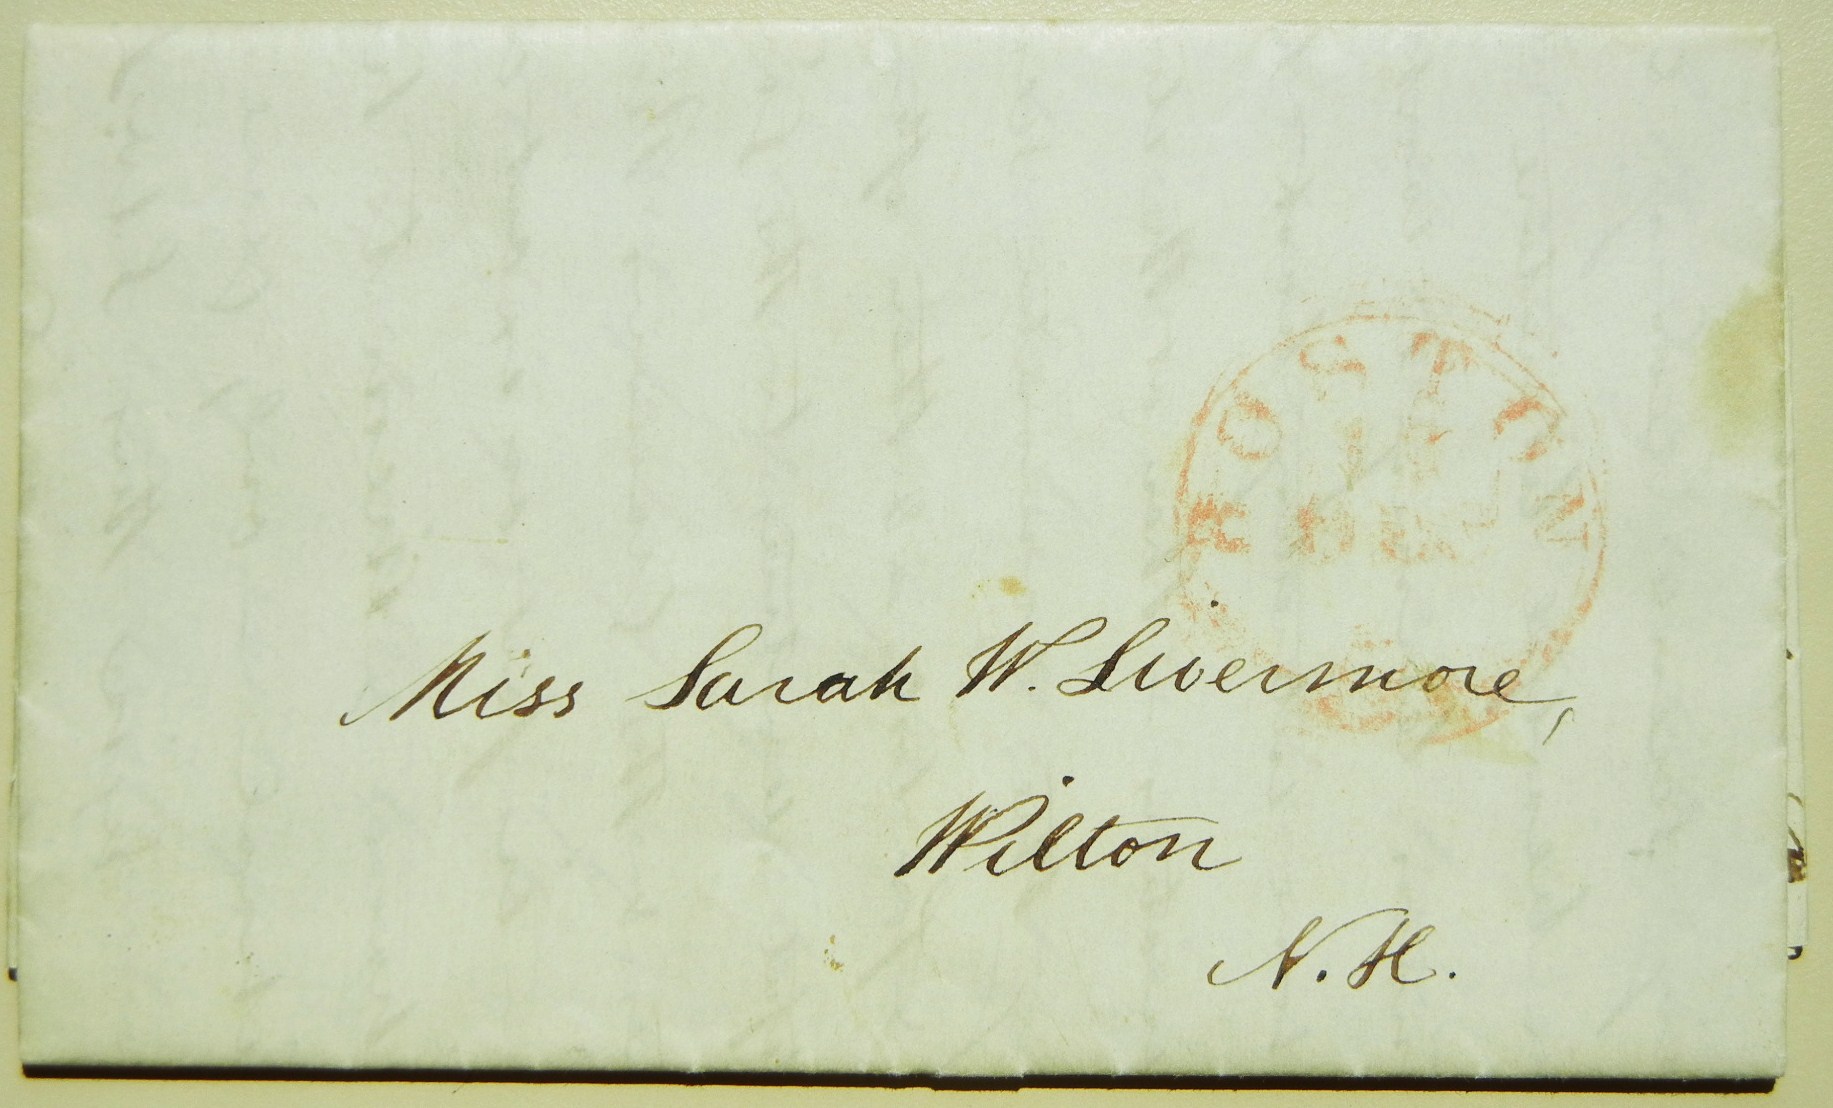 BOSTON
Miss Sarah W. Livermore,
Wilton
N. H.